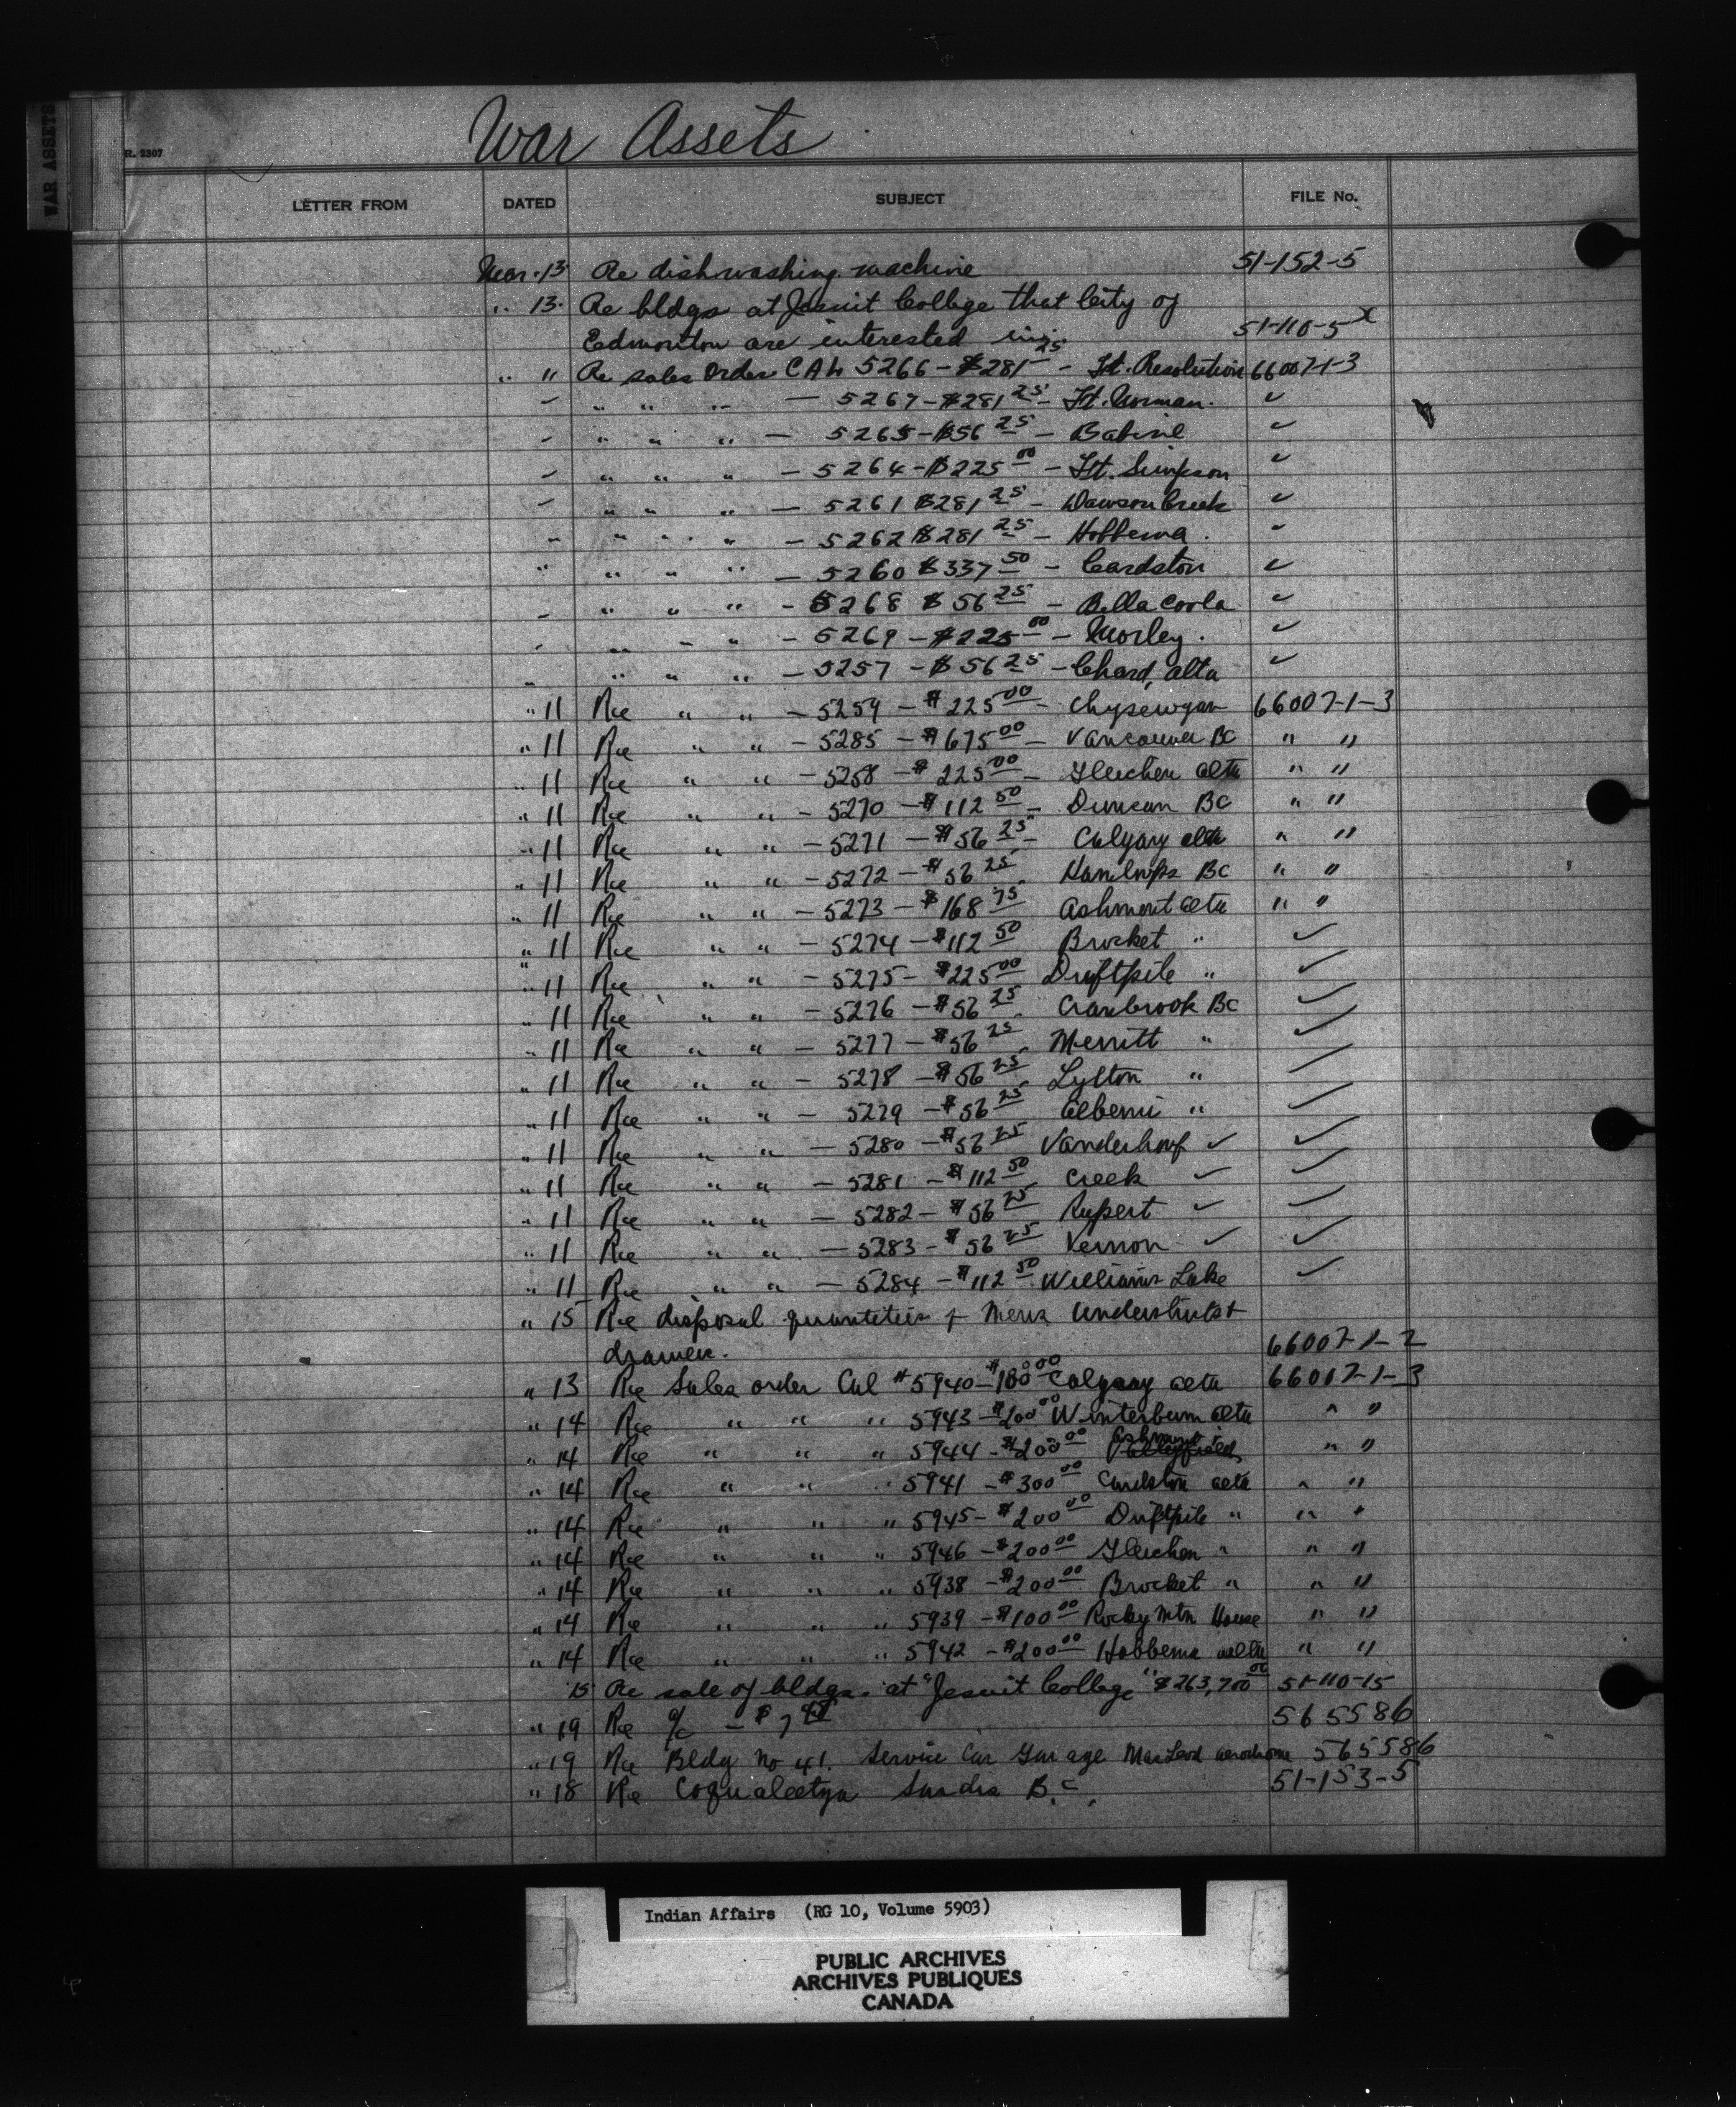 War Assets
WAR ASSETS
R. 2307
LETTER FROM DATED SUBJECT FILE No.
Mar. 13 Re dishwashing machine 51-152-5
" 13. Re bldgs at Jesuit College that City of
Edmonton are interested in. 51-110-5 x
" 11 Re sales Order CAL 5266 - $281 25 - Ft. Resolution 66007-1-3
" " " " - 5267 - $281 25 - Ft. Norman. ✓
" " " " - 5265 - $56 25 - Babine ✓
" " " " - 5264 - $225 00 - Ft. Simpson ✓
" " " " - 5261 $281 25 - Dawson Creek ✓
" " " " - 5262 $281 25 - Hobbema. "
" " " " - 5260 $337 50 - Cardston ✓
" " " " - 5268 $56 25 - Bella Coola ✓
" " " " - 5269 - $225 00 - Morley. ✓
" " " " - 5257 - $56 25 - Chard, Alta ✓
" 11 Re " " - 5259 - $225 00 - Chipewyan 66007-1-3
" 11 Re " " - 5285 - $675 00 - Vancouver BC " "
" 11 Re " " - 5258 - $225 00 - Gleichen alta " "
" 11 Re " " - 5270 - $112 50 - Duncan BC " "
" 11 Re " " - 5271 - $56 25 - Calgary alta " "
" 11 Re " " - 5272 - $56 25 Kamloops BC " "
" 11 Re " " - 5273 - $168 75 Ashmont alta " "
" 11 Re " " - 5274 - $112 50 Brocket " ✓
" 11 Re " " - 5275 - $225 00 Driftpile " ✓
" 11 Re " " - 5276 - $56 25 Cranbrook BC ✓
" 11 Re " " - 5277 - $56 25 Merritt " ✓
" 11 Re " " - 5278 - $56 25 Lytton " ✓
" 11 Re " " - 5279 - $56 25 Alberni " ✓
" 11 Re " " - 5280 - $56 25 Vanderhoof ✓ ✓
" 11 Re " " - 5281 - $112 50 Creek ✓ ✓
" 11 Re " " - 5282 - $56 25 Rupert ✓ ✓
" 11 Re " " - 5283 - $56 25 Vernon ✓ ✓
" 11 Re " " - 5284 - $112 50 Williams Lake ✓
" 15 Re disposal quantities of Mens Undershirts +
drawers. 66007-1-2
" 13 Re Sales order Cal # 5940 - $100 00 Calgary alta 66007-1-3
" 14 Re " " " 5943 - $200 00 Winterburn alta " "
" 14 Re " " " 5944 - $200 00 Ashmont " "
" 14 Re " " " 5941 - $300 00 Cardston alta " "
" 14 Re " " " 5945 - $200 00 Driftpile " " "
" 14 Re " " " 5946 - $200 00 Gleichen " " "
" 14 Re " " " 5938 - $200 00 Brocket " " "
" 14 Re " " " 5939 - $100 00 Rocky Mtn House " "
" 14 Re " " " 5942 - $200 00 Hobbema alta " "
15 Re sale of bldgs. at "Jesuit College" $263,700 00 51-110-15
" 19 Re a/c - $7 565586
" 19 Re Bldg No 41. Service Car Garage MacLeod aerodrome 565586
" 18 Re Coqualeetza Sardis B.C. 51-153-5
Indian Affairs (RG 10, Volume 5903)
PUBLIC ARCHIVES
ARCHIVES PUBLIQUES
CANADA